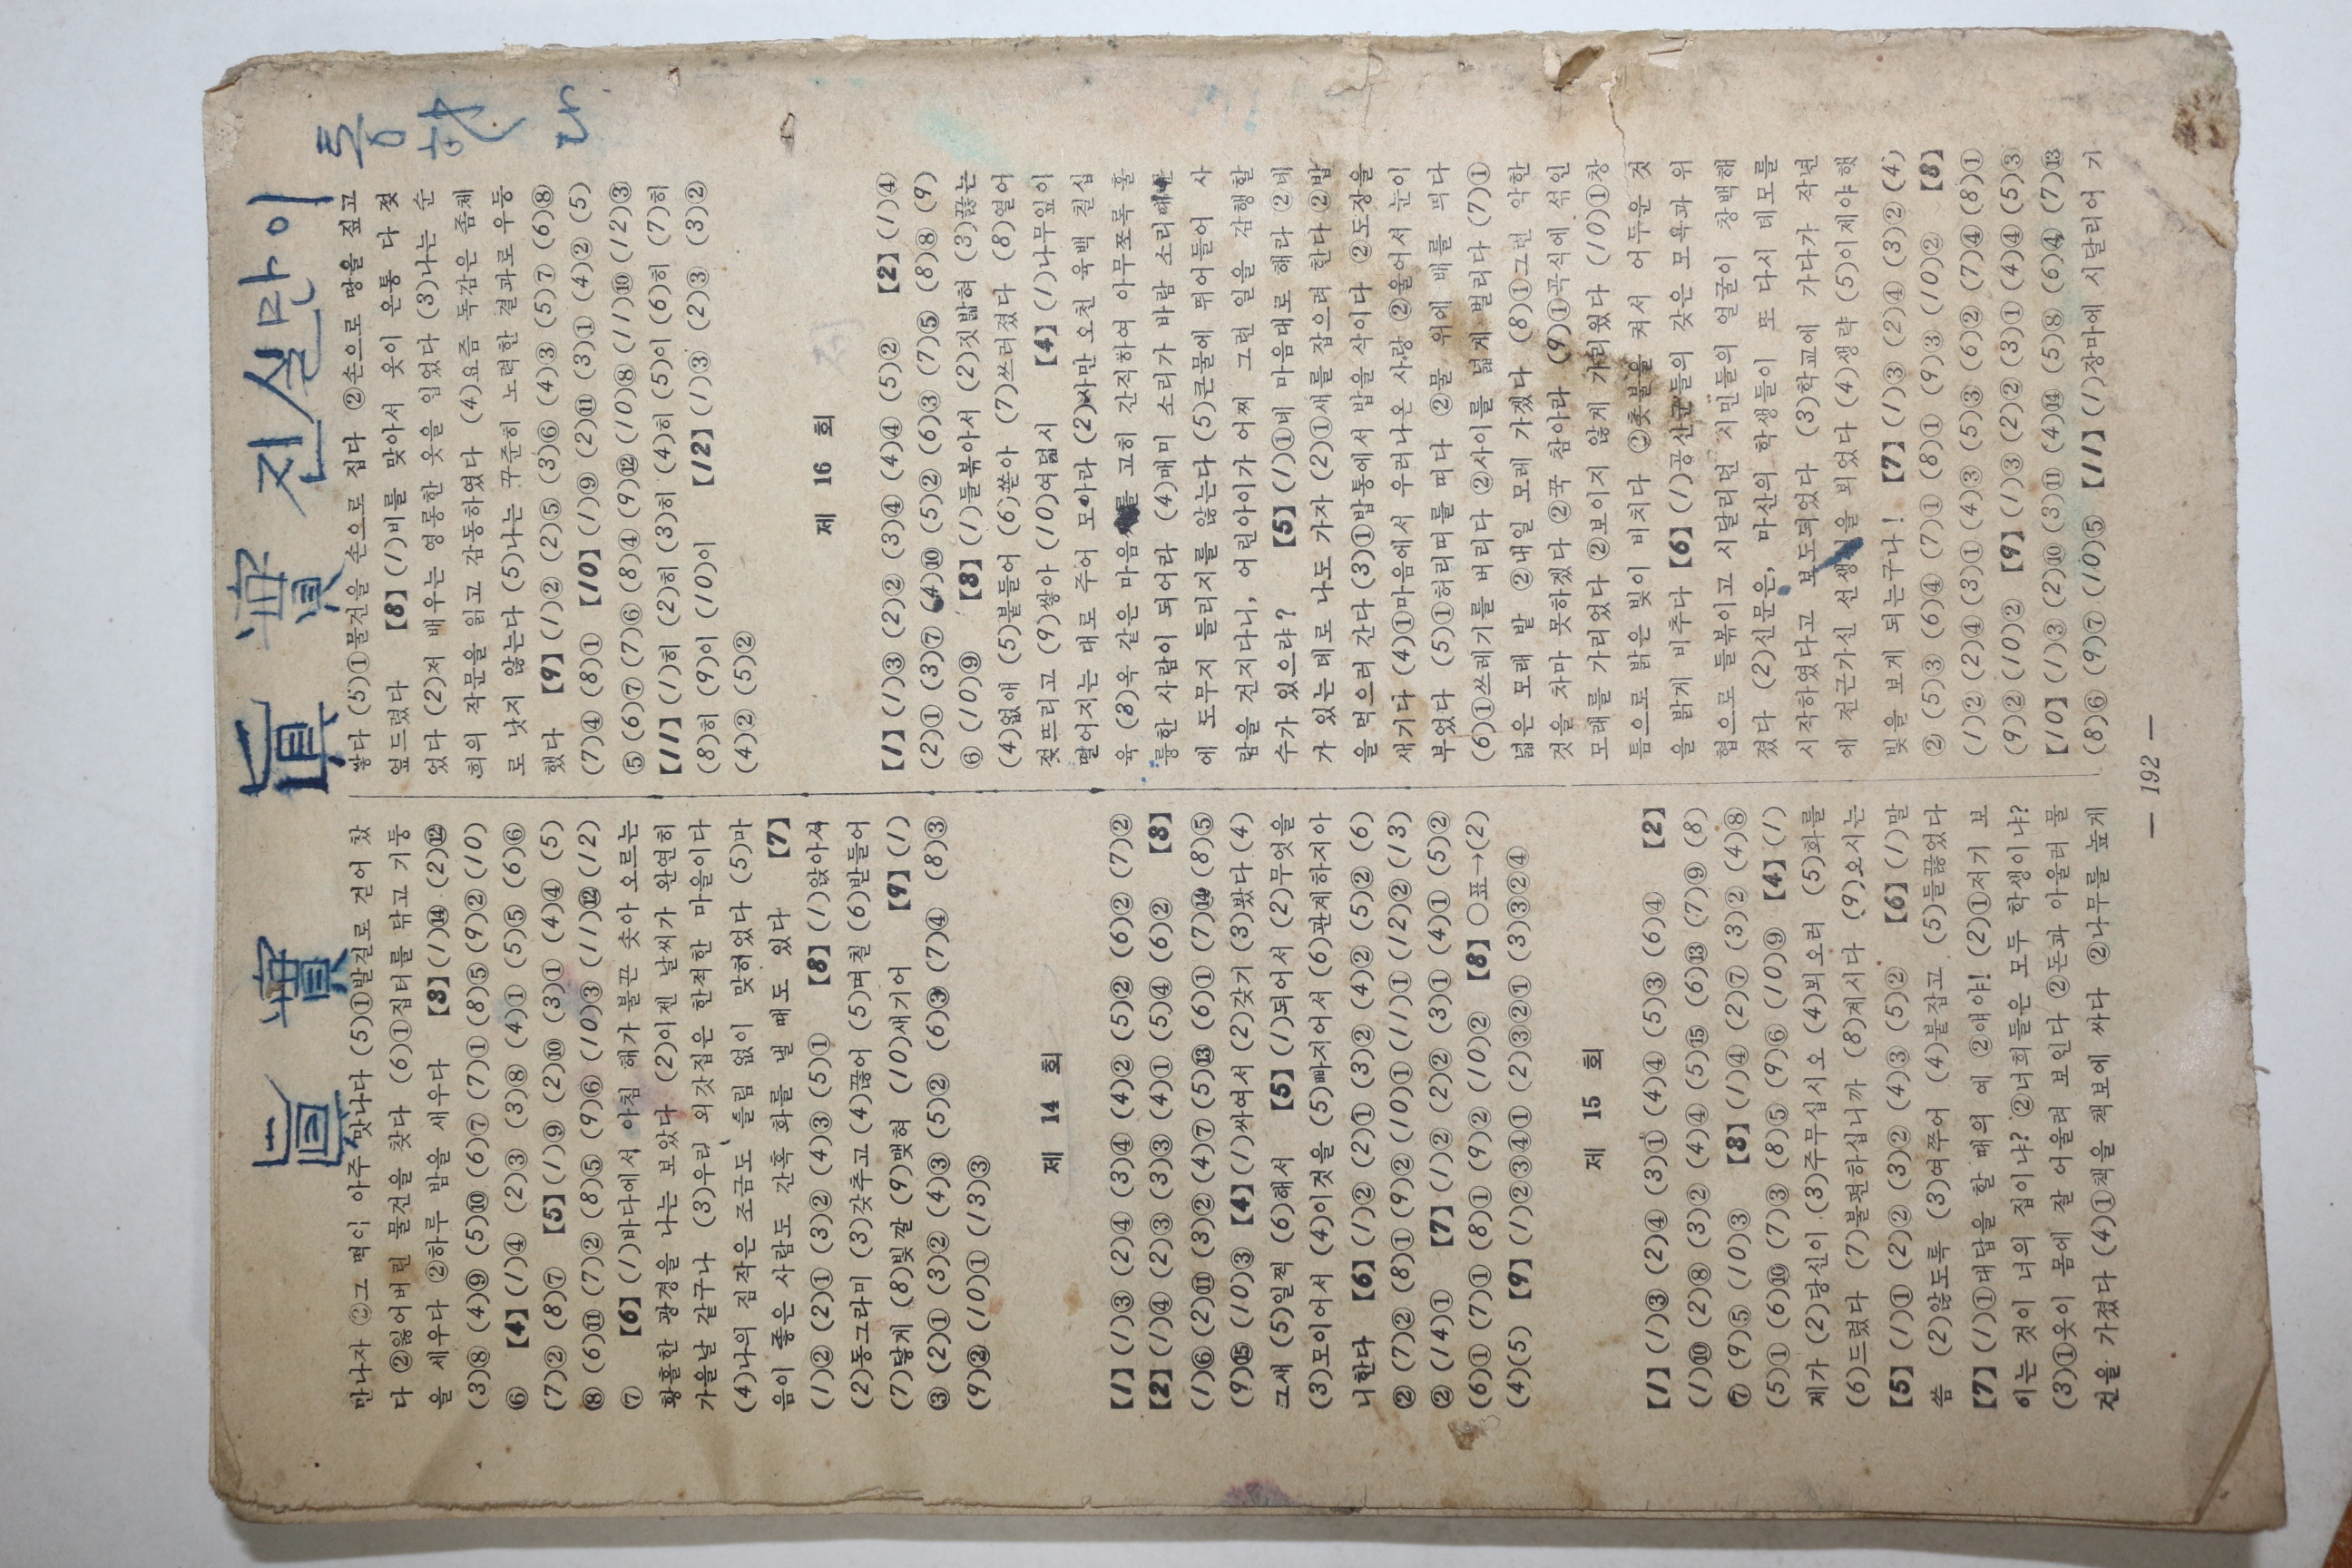 眞 實 眞 實 진실만이
통하
나
만나자 ②그 떡이 아주 맛나다 (5)①발길로 걷어 찼
다 ②잃어버린 물건을 찾다 (6)①집터를 닦고 기둥
을 세우다 ②하루 밤을 새우다 【3】(1)⑭ (2)⑫
(3)⑧ (4)⑨ (5)⑩ (6)⑦ (7)① (8)⑤ (9)② (10)
⑥ 【4】(1)④ (2)③ (3)⑧ (4)① (5)⑤ (6)⑥
(7)② (8)⑦ 【5】(1)⑨ (2)⑩ (3)① (4)④ (5)
⑧ (6)⑪ (7)② (8)⑤ (9)⑥ (10)③ (11)⑫ (12)
⑦ 【6】(1)바다에서 아침 해가 불끈 솟아 오르는
황홀한 광경을 나는 보았다 (2)이젠 날씨가 완연히
가을날 같구나 (3)우리 외갓집은 한적한 마을이다
(4)나의 짐작은 조금도 틀림 없이 맞혀었다 (5)마
음이 좋은 사람도 간혹 화를 낼 때도 있다 【7】
(1)② (2)① (3)② (4)③ (5)① 【8】(1)앉아서
(2)동그라미 (3)갖추고 (4)끊어 (5)며칠 (6)받들어
(7)닿게 (8)빛깔 (9)맺혀 (10)새기어 【9】(1)
③ (2)① (3)② (4)③ (5)② (6)③ (7)④ (8)③
(9)② (10)① (13)③
제 14 회
【1】(1)③ (2)④ (3)④ (4)② (5)② (6)② (7)②
【2】(1)④ (2)③ (3)③ (4)① (5)④ (6)② 【3】
(1)⑥ (2)⑪ (3)② (4)⑦ (5)⑬ (6)① (7)⑭ (8)⑤
(9)⑮ (10)③ 【4】(1)싸여서 (2)갖기 (3)왔다 (4)
그새 (5)일찍 (6)해서 【5】(1)되어서 (2)무엇을
(3)모이어서 (4)이것을 (5)빠지어서 (6)관계하지아
니한다 【6】(1)② (2)① (3)② (4)② (5)② (6)
② (7)② (8)① (9)② (10)① (11)① (12)② (13)
② (14)① 【7】(1)② (2)② (3)① (4)① (5)②
(6)① (7)① (8)① (9)② (10)② 【8】○표→(2)
(4)(5) 【9】(1)②③④① (2)③②① (3)③②④
제 15 회
【1】(1)③ (2)④ (3)① (4)④ (5)③ (6)④ 【2】
(1)⑩ (2)⑧ (3)② (4)④ (5)⑮ (6)⑬ (7)⑨ (8)
⑦ (9)⑤ (10)③ 【3】(1)④ (2)⑦ (3)② (4)⑧
(5)① (6)⑩ (7)③ (8)⑤ (9)⑥ (10)⑨ 【4】(1)
제가 (2)당신이 (3)주무십시오 (4)뵈오러 (5)화를
(6)드렸다 (7)불편하십니까 (8)계시다 (9)오시는
【5】(1)① (2)② (3)② (4)③ (5)② 【6】(1)말
씀 (2)않도록 (3)여쭈어 (4)붙잡고 (5)들끓었다
【7】(1)①대답을 할 때의 예 ②얘야! (2)①저기 보
이는 것이 너의 집이냐? ②너희들은 모두 학생이냐?
(3)①옷이 몸에 잘 어울려 보인다 ②돈과 아울러 물
건을 가졌다 (4)①책을 책보에 싸다 ②나무를 높게
쌓다 (5)①물건을 손으로 집다 ②손으로 땅을 짚고
엎드렸다 【8】(1)비를 맞아서 옷이 온통 다 젖
었다 (2)저 배우는 영롱한 옷을 입었다 (3)나는 순
희의 작문을 읽고 감동하였다 (4)요즘 독감은 좀체
로 낫지 않는다 (5)나는 꾸준히 노력한 결과로 우등
했다 【9】(1)② (2)⑤ (3)⑥ (4)③ (5)⑦ (6)⑧
(7)④ (8)① 【10】(1)⑨ (2)⑪ (3)① (4)② (5)
⑤ (6)⑦ (7)⑥ (8)④ (9)⑫ (10)⑧ (11)⑩ (12)③
【11】(1)히 (2)히 (3)히 (4)히 (5)이 (6)히 (7)히
(8)히 (9)이 (10)이 【12】(1)③ (2)③ (3)②
(4)② (5)②
제 16 회
【1】(1)③ (2)② (3)④ (4)④ (5)② 【2】(1)④
(2)① (3)⑦ (4)⑩ (5)② (6)③ (7)⑤ (8)⑧ (9)
⑥ (10)⑨ 【3】(1)들볶아서 (2)짓밟혀 (3)끓는
(4)없애 (5)붙들어 (6)쏟아 (7)쓰러졌다 (8)열어
젖뜨리고 (9)쌓아 (10)여덟시 【4】(1)나무잎이
떨어지는 대로 주어 모아라 (2)사만 오천 육백 칠십
육 (3)옥 같은 마음를 고히 간직하여 아무쪼록 훌
륭한 사람이 되어라 (4)매미 소리가 바람 소리
에 도무지 들리지를 않는다 (5)큰물에 뛰어들어 사
람을 건지다니, 어린아이가 어찌 그런 일을 감행할
수가 있으랴? 【5】(1)①네 마음대로 해라 ②네
가 있는 데로 나도 가자 (2)①새를 잡으려 한다 ②밥
을 먹으러 간다 (3)①밥통에서 밥을 삭이다 ②도장을
새기다 (4)①마음에서 우러나온 사랑 ②울어서 눈이
부었다 (5)①허리띠를 띠다 ②물 위에 배를 띄다
(6)①쓰레기를 버리다 ②사이를 넓게 벌리다 (7)①
넓은 모래 밭 ②내일 모레 가겠다 (8)①그런 악한
것을 차마 못하겠다 ②꾹 참아라 (9)①곡식에 섞인
모래를 가리었다 ②보이지 않게 가리웠다 (10)①창
틈으로 밝은 빛이 비치다 ②촛불을 켜서 어두운 것
을 밝게 비추다 【6】(1)공산군들의 갖은 모욕과 위
협으로 들볶이고 시달리던 시민들의 얼굴이 창백해
졌다 (2)신문은, 마산의 학생들이 또 다시 데모를
시작하였다고 보도되었다 (3)학교에 가다가 작년
에 전근가신 선생님을 뵈었다 (4)생략 (5)이제야 햇
빛을 보게 되는구나! 【7】(1)③ (2)④ (3)② (4)
② (5)③ (6)④ (7)① (8)① (9)③ (10)② 【8】
(1)② (2)④ (3)① (4)③ (5)③ (6)② (7)④ (8)①
(9)② (10)② 【9】(1)③ (2)② (3)① (4)④ (5)③
【10】(1)③ (2)⑩ (3)⑪ (4)⑭ (5)⑧ (6)④ (7)⑬
(8)⑥ (9)⑦ (10)⑤ 【11】(1)장마에 시달리어 기
— 192 —